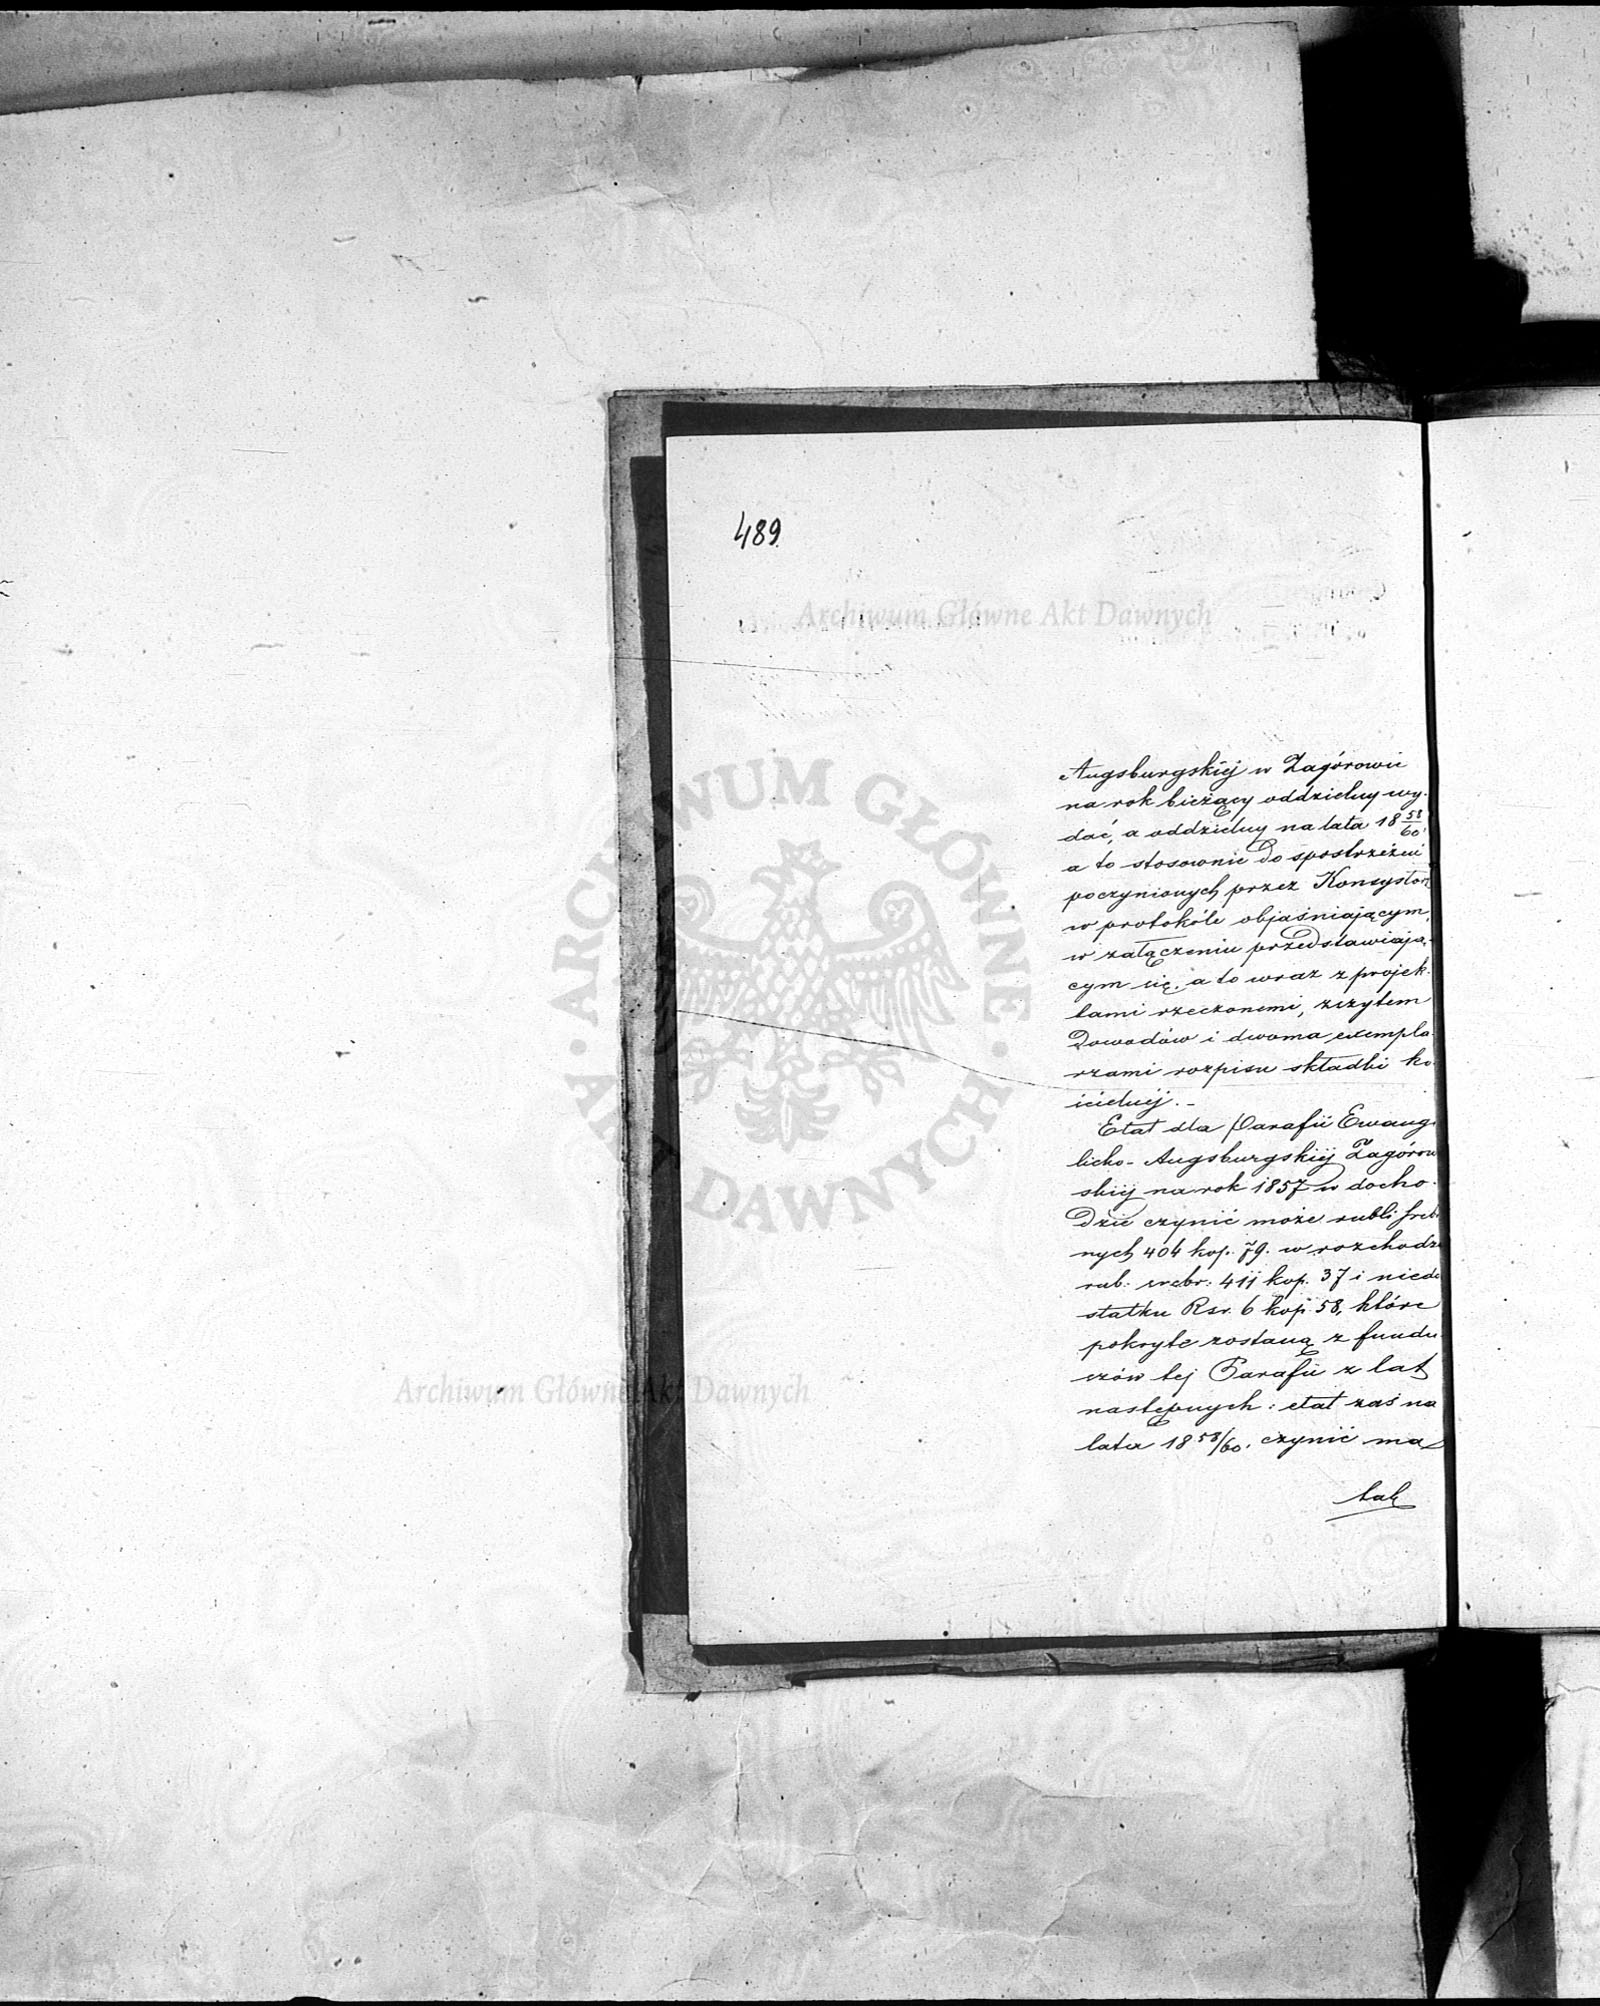 489.
Augsburgskiej w Zagórowie
na rok bieżący oddzielny wy-
dać, a oddzielny na lata 18 58/60,
a to stosownie do spostrzeżeń
poczynionych przez Konsystorz
w protokóle objaśniającym,
w załączeniu przedstawiają-
cym się, a to wraz z projek-
tami rzeczonemi, zszytem
Dowodów i dwoma exempla-
rzami rozpisu składki ko-
ścielnej. -
Etat dla Parafii Ewange
licko-Augsburgskiej Zagórow
skiej na rok 1857 w docho-
dzie czynić może rubli sreb
nych 404 kop. 79. w rozchodzie
rub: srebr: 411 kop. 37 i niedo
statku Rsr. 6 kop 58, które
pokryte zostaną z fundu-
szów tej Parafii z lat
następnych: etat zaś na
lata 18 58/60. czynić ma
tak
Archiwum Główne Akt Dawnych
Archiwum Główne Akt Dawnych
ARCHIWUM GŁÓWNE · AKT DAWNYCH ·